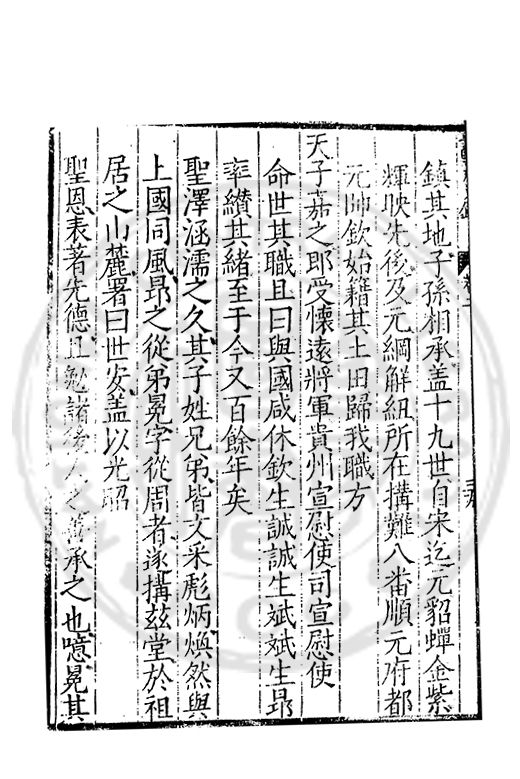 鎮其地子孫相承盖十九世自宋迄元貂蟬金紫
輝映先後及元綱解紐所在搆難八番順元府都
元帥欽始籍其土田歸我職方
天子嘉之即受懷遠將軍貴州宣慰使司宣慰使
命世其職且曰與國咸休欽生誠誠生斌斌生昂
率纉其緒至于今又百餘年矣
聖澤涵濡之久其子姓兄弟皆文采彪炳煥然與
上國同風昂之從弟冕字從周者遂搆兹堂於祖
居之山麓署曰世安盖以光昭
聖恩表著先德且勉諸後人之善承之也噫冕其